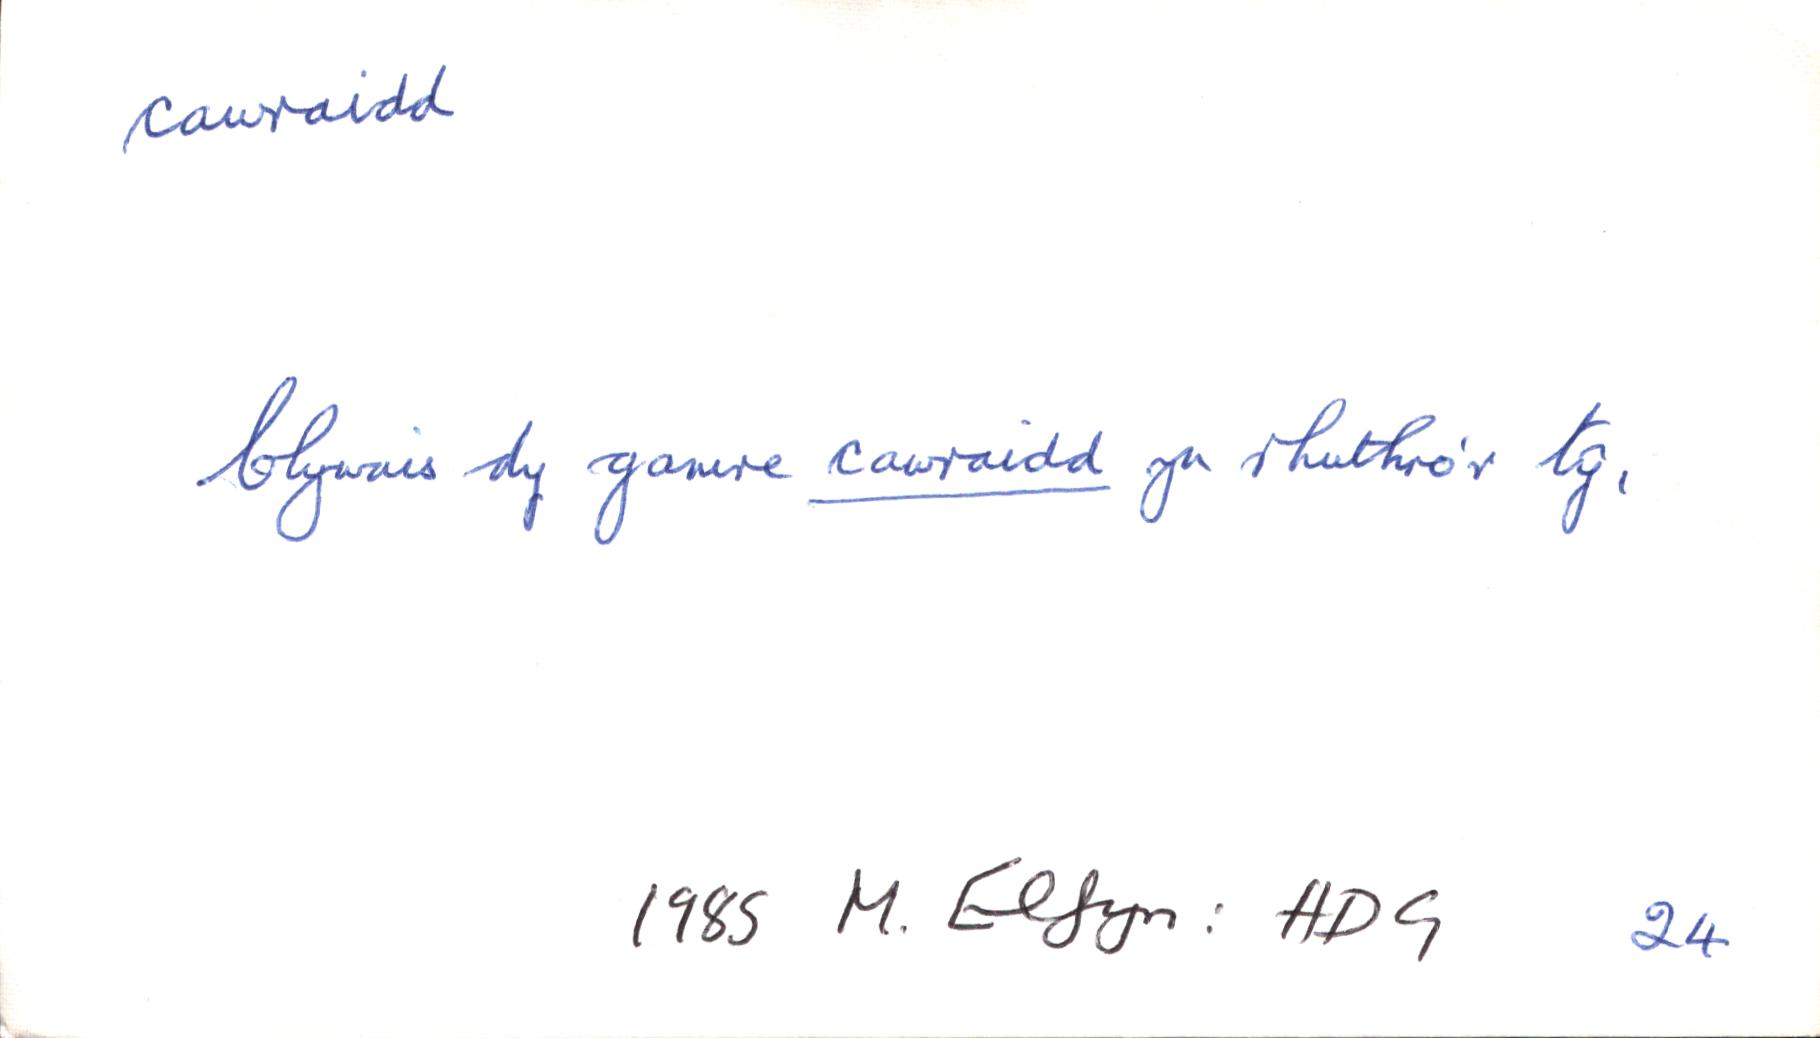 cawraidd
Clywais dy gamre cawraidd yn rhuthro'r tŷ,
1985 M. Elfyn: HDG 24